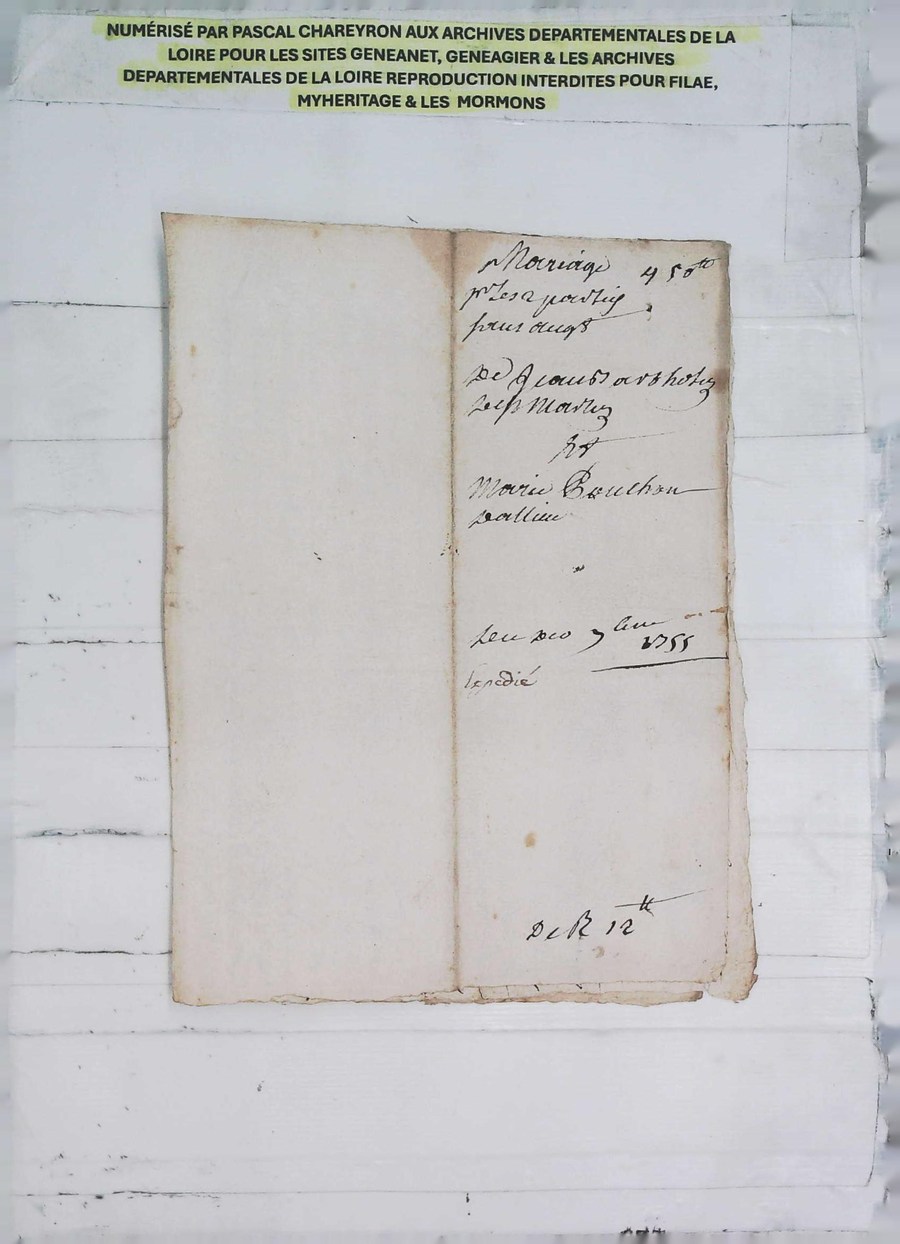 NUMÉRISÉ PAR PASCAL CHAREYRON AUX ARCHIVES DEPARTEMENTALES DE LA
LOIRE POUR LES SITES GENEANET, GENEAGIER & LES ARCHIVES
DEPARTEMENTALES DE LA LOIRE REPRODUCTION INTERDITES POUR FILAE,
MYHERITAGE & LES MORMONS
Mariage 450tt
pr les 2 partis
sans augt
De Jean
Et
Marie Ponchon
1755
Expedié
De R 12tt